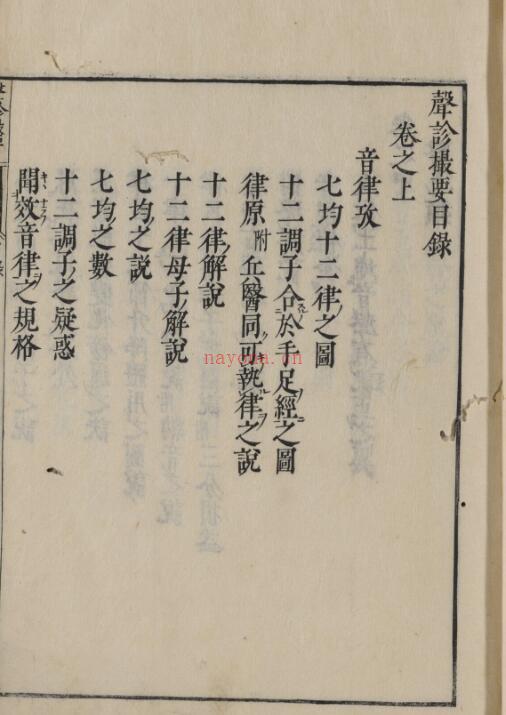 聲診撮要目録
卷之上
音律攷
七均十二律之圖
十二調子合於手足經之圖
律原附兵醫同可執律之說
十二律解說
十二律母子解說
七均之說
七均之數
十二調子之疑惑
聞效音律之規格
nayona.cn